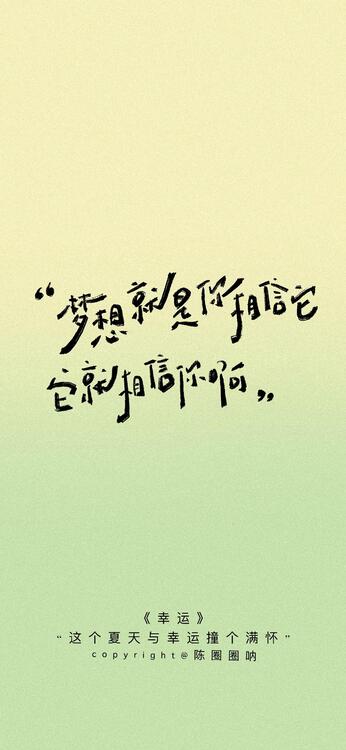 “梦想就是你相信它
它就相信你啊”
《幸运》
“这个夏天与幸运撞个满怀”
copyright@陈圈圈呐